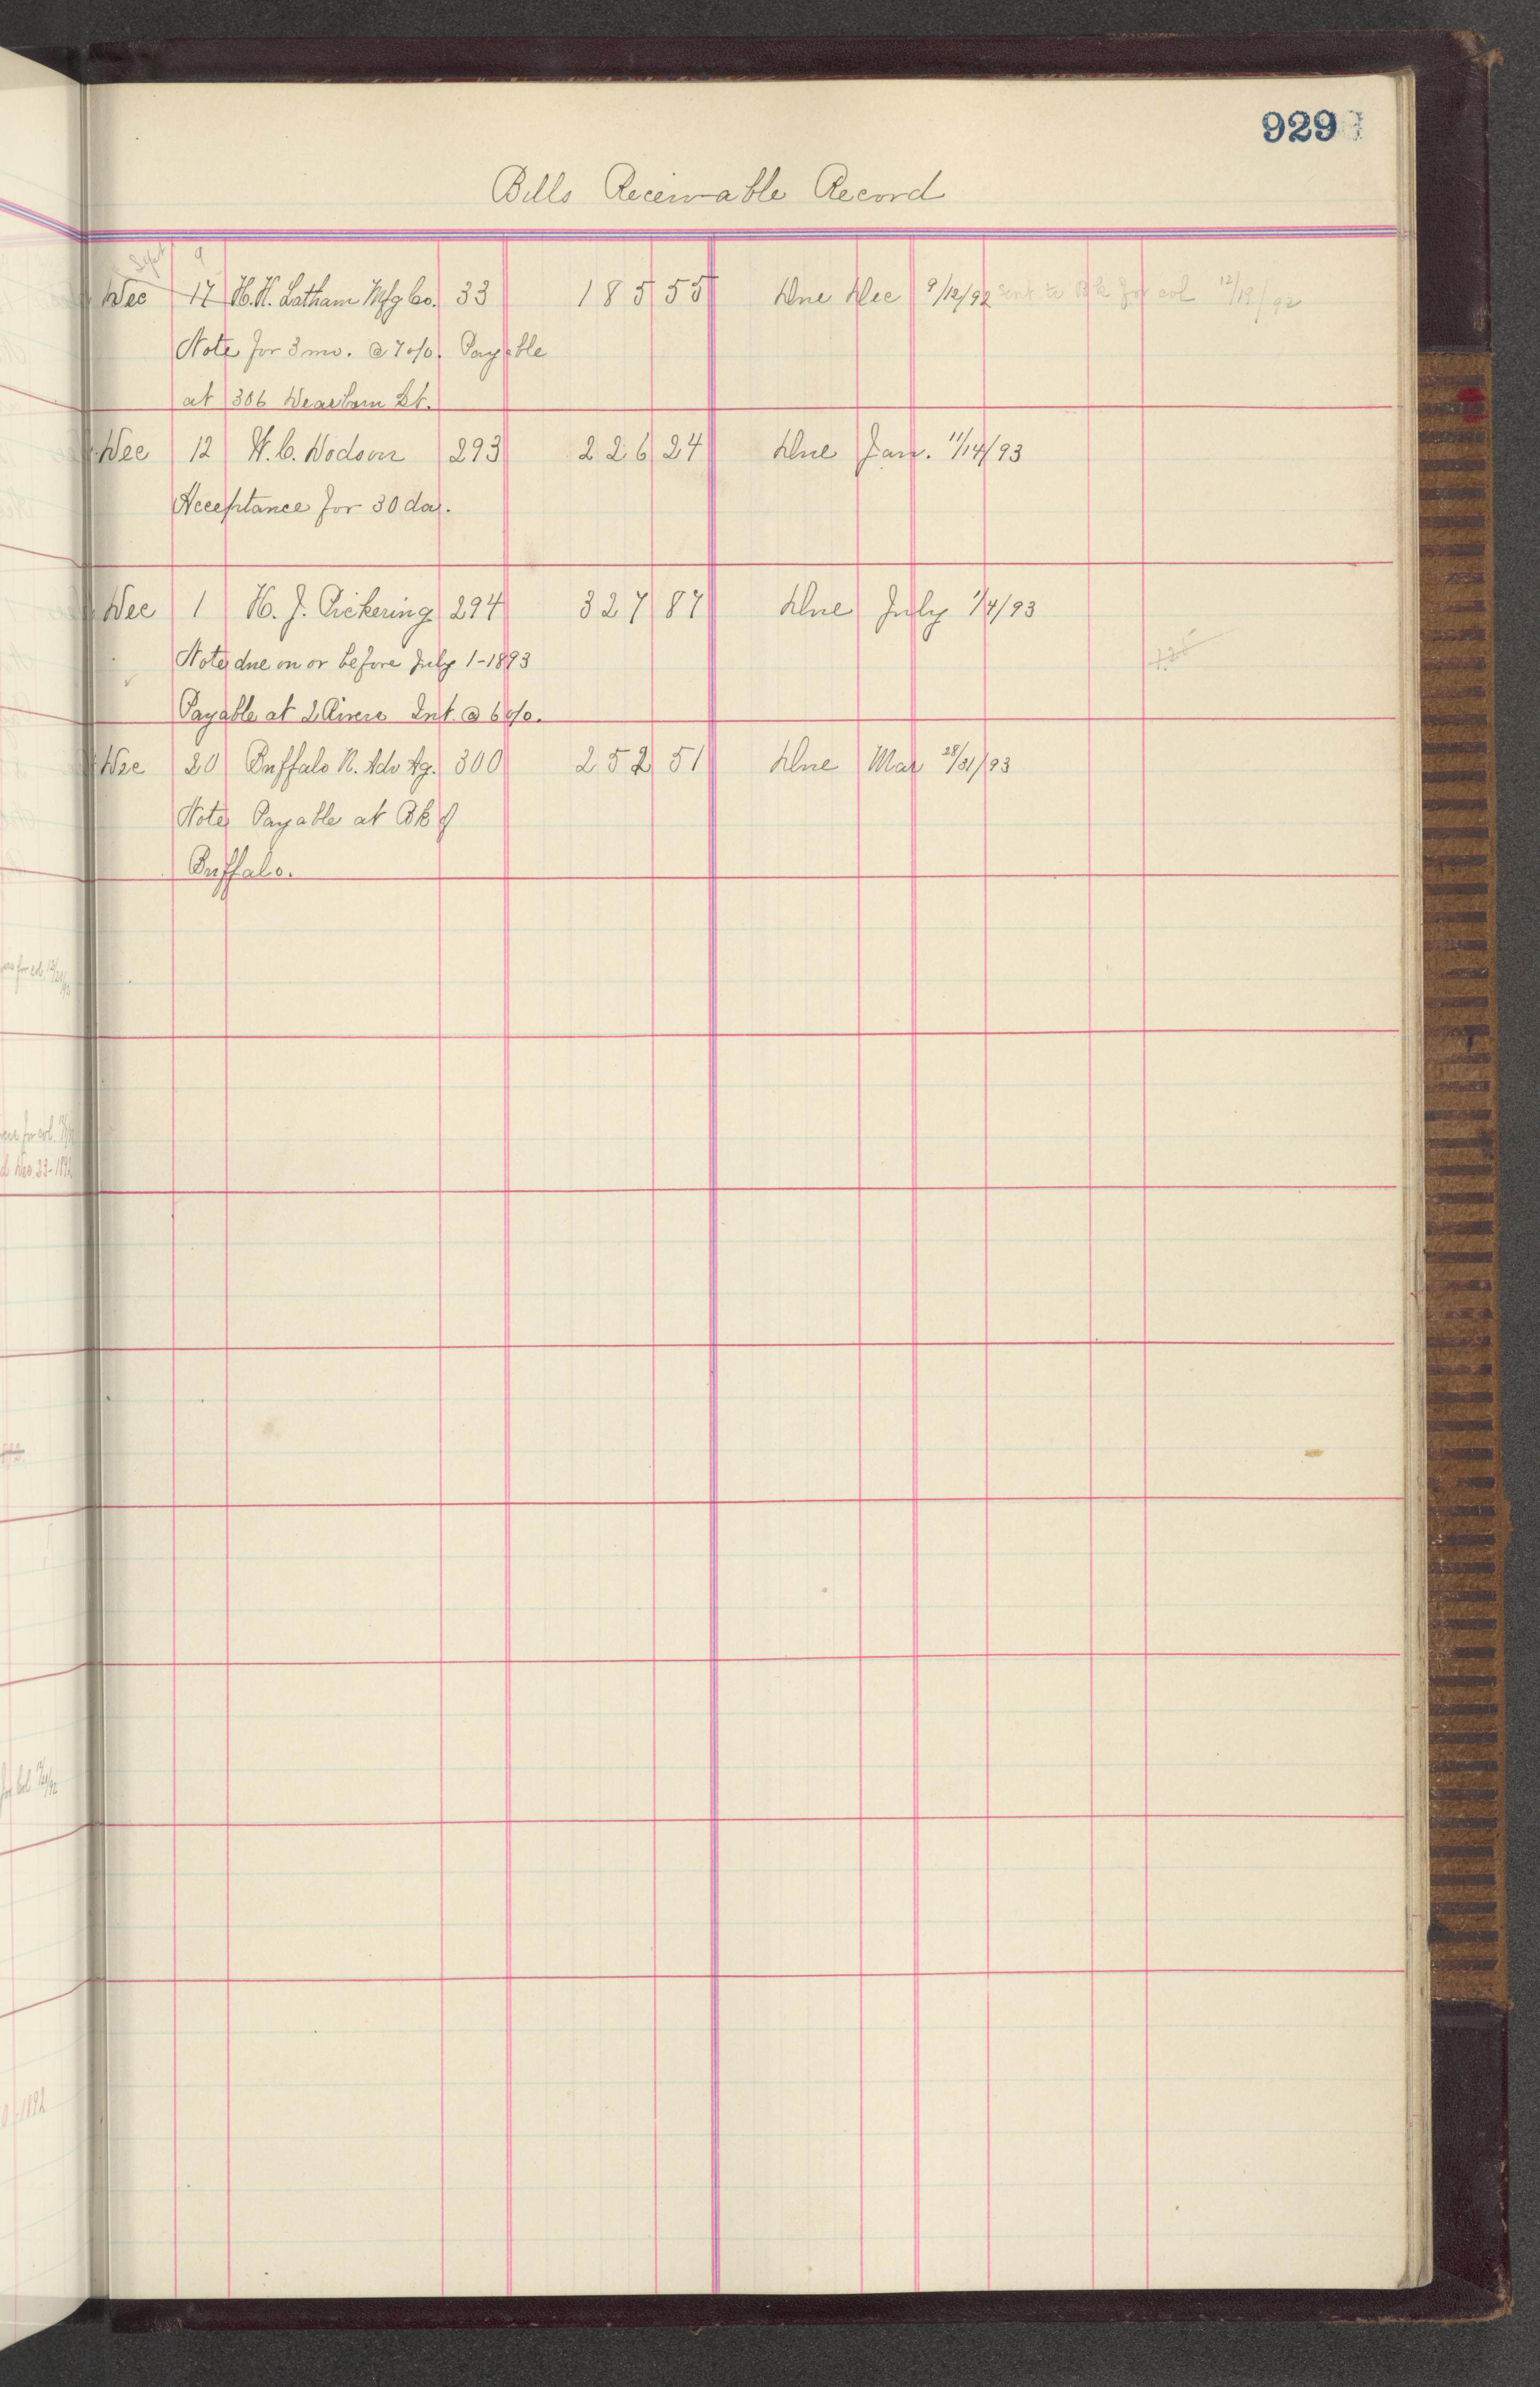 929
Bills Receivable Record
Sept 9
Dec 17 H.H. Latham Mfg Co. 33 185 55 Due Dec 9/12/92 sent to Bk for col 12/19/92
Note for 3 mo. @ 7 o/o. Payable
at 306 Dearborn St.
Dec 12 W. C. Dodson 293 226 24 Due Jan. 11/14/93
Acceptance for 30 da.
Dec 1 H. J. Pickering 294 327 87 Due July 1/4/93
Note due on or before July 1-1893
Payable at 2 Rivers Int. @ 6 o/o.
Dec 20 Buffalo N. Adv Ag. 300 252 51 Due Mar 28/31/93
Note Payable at Bk of
Buffalo.